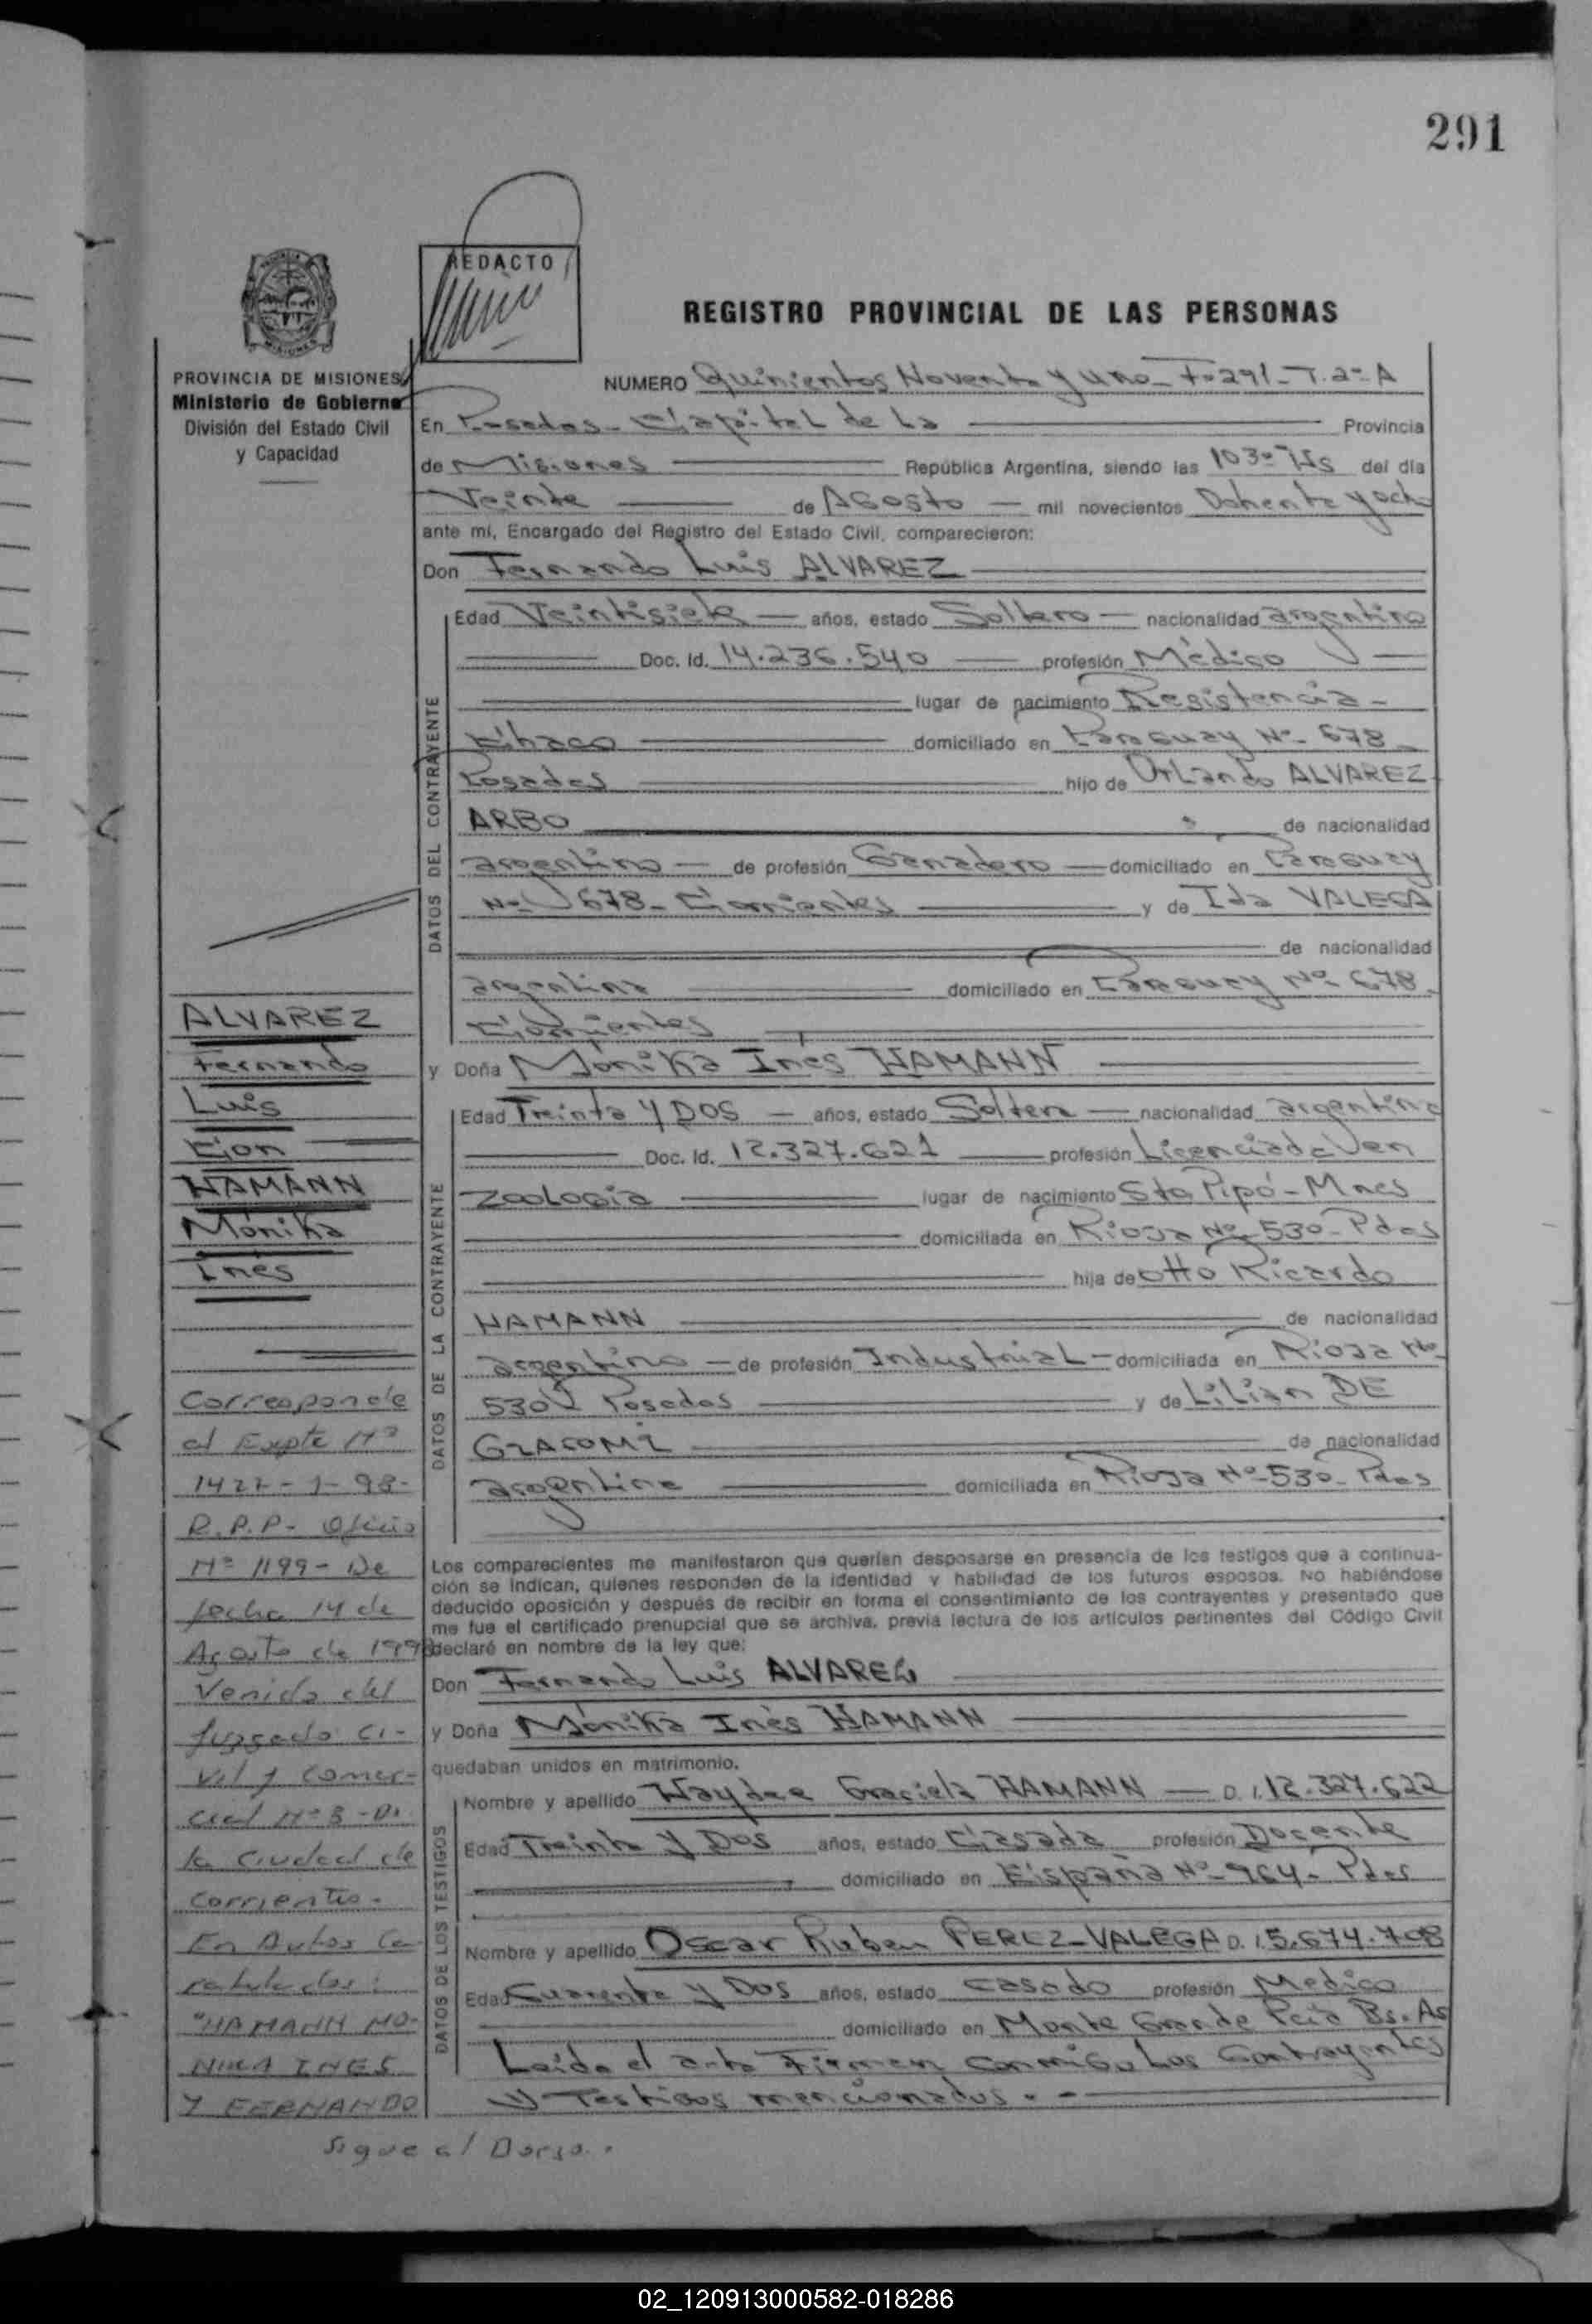 291
REDACTO
REGISTRO PROVINCIAL DE LAS PERSONAS
PROVINCIA DE MISIONES
Ministerio de Gobierno
División del Estado Civil
y Capacidad
NUMERO Quinientos Noventa y uno - Fº 291 - T. 2º A
En Posadas - Capital de La Provincia
de Misiones República Argentina, siendo las 1030 Hs del día
Veinte de Agosto mil novecientos Ochenta y ocho
ante mí, Encargado del Registro del Estado Civil, comparecieron:
Don Fernando Luis ALVAREZ
DATOS DEL CONTRAYENTE
Edad Veintisiete años, estado Soltero nacionalidad argentino
Doc. Id. 14.236.540 profesión Médico
lugar de nacimiento Resistencia -
Chaco domiciliado en Paraguay Nº 678 -
Posadas hijo de Orlando ALVAREZ
ARBO de nacionalidad
argentino de profesión Ganadero domiciliado en Paraguay
Nº 678 - Corrientes y de Ida VALEGA
de nacionalidad
argentina domiciliado en Paraguay Nº 678 -
Corrientes
y Doña Mónika Inés HAMANN
DATOS DE LA CONTRAYENTE
Edad Treinta y DOS años, estado Soltera nacionalidad argentina
Doc. Id. 12.327.621 profesión Licenciada en
Zoología lugar de nacimiento Sto Pipó - Mnes
domiciliada en Rioja Nº 530 - Pdas
hija de Otto Ricardo
HAMANN de nacionalidad
argentino de profesión Industrial domiciliada en Rioja Nº
530 Posadas y de Lilian DE
GIACOMI de nacionalidad
argentina domiciliada en Rioja Nº 530 - Pdas
Los comparecientes me manifestaron que querían desposarse en presencia de los testigos que a continua-
ción se indican, quienes responden de la identidad y habilidad de los futuros esposos. No habiéndose
deducido oposición y después de recibir en forma el consentimiento de los contrayentes y presentado que
me fue el certificado prenupcial que se archiva, previa lectura de los artículos pertinentes del Código Civil
declaré en nombre de la ley que:
Don Fernando Luis ALVAREZ
y Doña Mónika Inés HAMANN
quedaban unidos en matrimonio.
DATOS DE LOS TESTIGOS
Nombre y apellido Haydee Graciela HAMANN - D.I. 12.327.622
Edad Treinta y Dos años, estado Casada profesión Docente
domiciliado en España Nº 964 - Pdas
Nombre y apellido Oscar Ruben PEREZ-VALEGA D.I. 5.674.708
Edad Cuarenta y Dos años, estado Casado profesión Medico
domiciliado en Monte Grande Pcia Bs. As
Leida el acta Firman conmigo Los Contrayentes
y Testigos mencionados. -
ALVAREZ
Fernando
Luis
Con
HAMANN
Mónika
Inés
Corresponde
al Expte Nº
1422-1-98-
R.P.P- Oficio
Nº 1199 - De
fecha 14 de
Agosto de 1998
Venido del
Juzgado Ci-
vil y Comer-
cial Nº 3 - De
la Ciudad de
Corrientes.
En Autos Ca-
ratulados:
"HAMANN MO-
NIKA INES
Y FERNANDO
Sigue al Dorso.
02_120913000582-018286